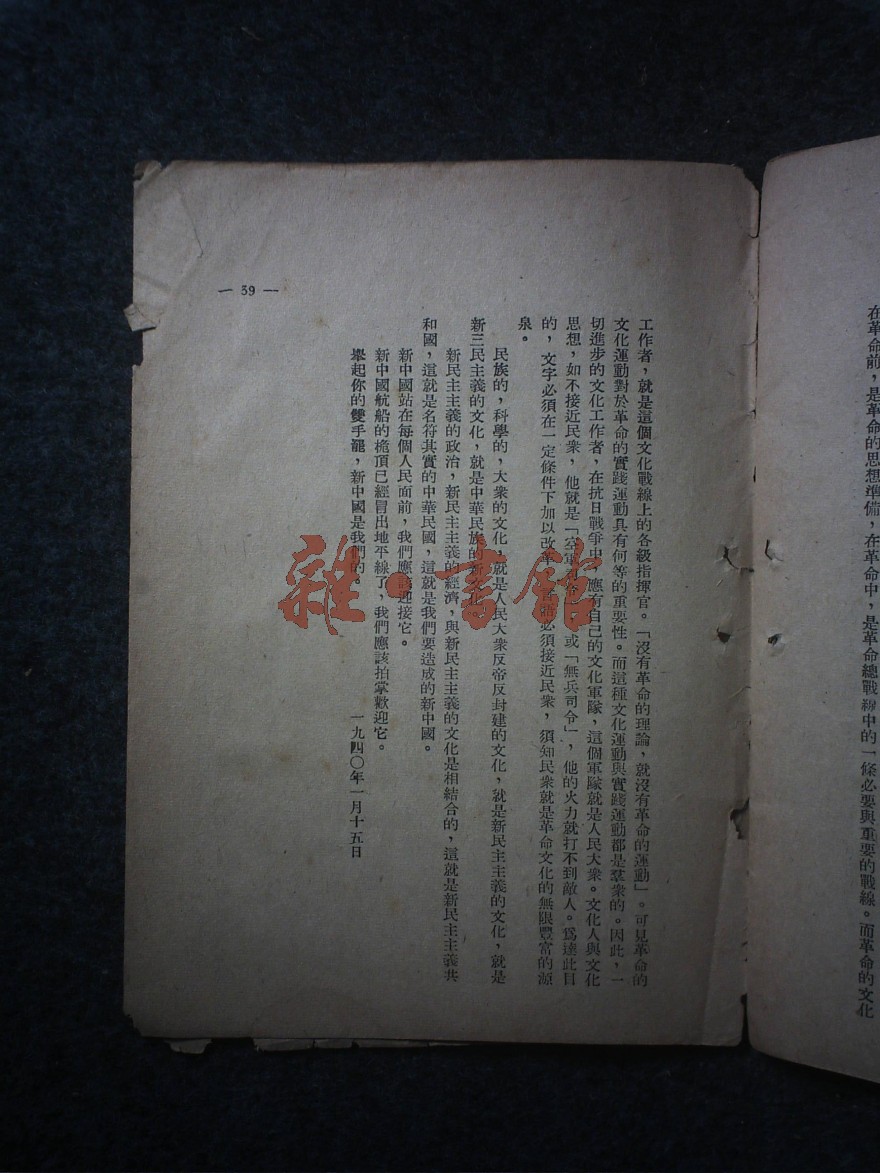 在革命前,是革命的思想準備,在革命中,是革命總戰線中的一條必要與重要的戰線。而革命的文化
工作者,就是這個文化戰線上的各級指揮官。「沒有革命的理論,就沒有革命的運動」。可見革命的
文化運動對於革命的實踐運動具有何等的重要性。而這種文化運動與實踐運動都是羣衆的。因此,一
切進步的文化工作者,在抗日戰爭中,應有自己的文化軍隊,這個軍隊就是人民大衆。文化人與文化
思想,如不接近民衆,他就是「空軍司令」,或「無兵司令」,他的火力就打不到敵人。爲達此目
的,文字必須在一定條件下加以改革,必須接近民衆,須知民衆就是革命文化的無限豐富的源
泉。
民族的,科學的,大衆的文化,就是人民大衆反帝反封建的文化,就是新民主主義的文化,就是
新三民主義的文化,就是中華民族的新文化。
新民主主義的政治,新民主主義的經濟,與新民主主義的文化是相結合的,這就是新民主主義共
和國,這就是名符其實的中華民國,這就是我們要造成的新中國。
新中國站在每個人民面前,我們應該迎接它。
新中國航船的桅頂已經冒出地平線了,我們應該拍掌歡迎它。
舉起你的雙手罷,新中國是我們的。
一九四〇年一月十五日
— 39 —
雜·書館